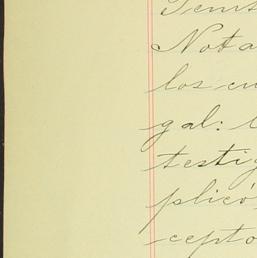 Nota
los cu
gal:
testig
plicó
cepto